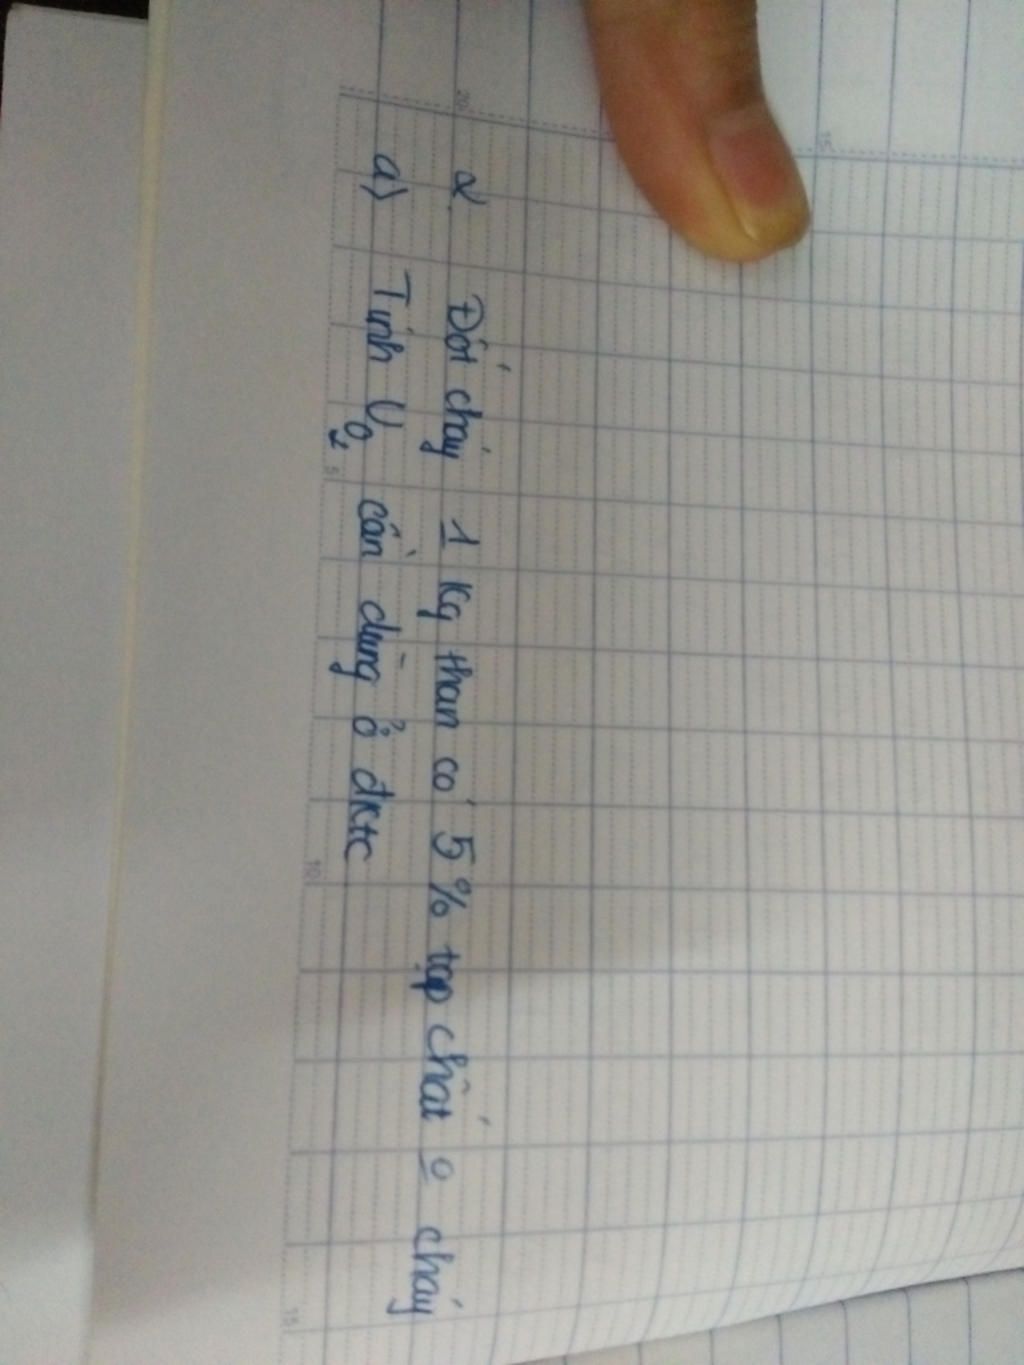 2. Đốt cháy 1 Kg than có 5% tạp chất o cháy
a) Tính VO₂ cần dùng ở đktc